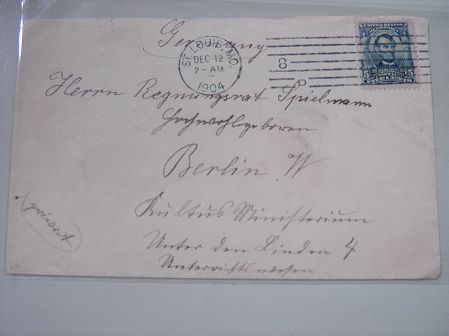 Germany
ST. LOUIS, MO.
DEC 12
2-AM
1904
8
5 5
Herrn Regierungsrat Spielmann
Hochwohlgeboren
Berlin W
Kultus Ministerium
Unter den Linden 4
Unterrichtswesen